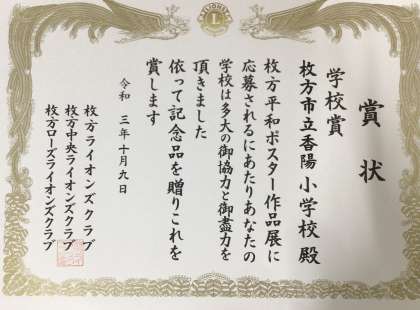 賞状
学校賞
枚方市立香陽小学校殿
枚方平和ポスター作品展に
応募されるにあたりあなたの
学校は多大の御協力と御盡力を
頂きました
依って記念品を贈りこれを
賞します
令和三年十月九日
枚方ライオンズクラブ
枚方中央ライオンズクラブ
枚方ローズライオンズクラブ